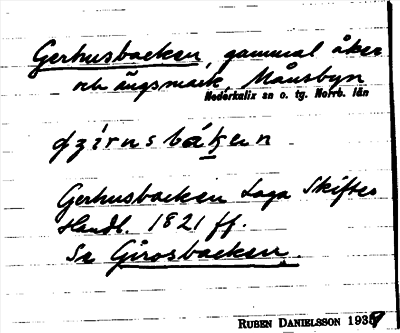 Gerhusbacken, gammal åker
och ängsmark, Månsbyn
Nederkalix sn o. tg. Norrb. län
Gerhusbacken Laga Skiftes
Handl. 1821 ff.
Se Girosbacken.
RUBEN DANIELSSON 1937